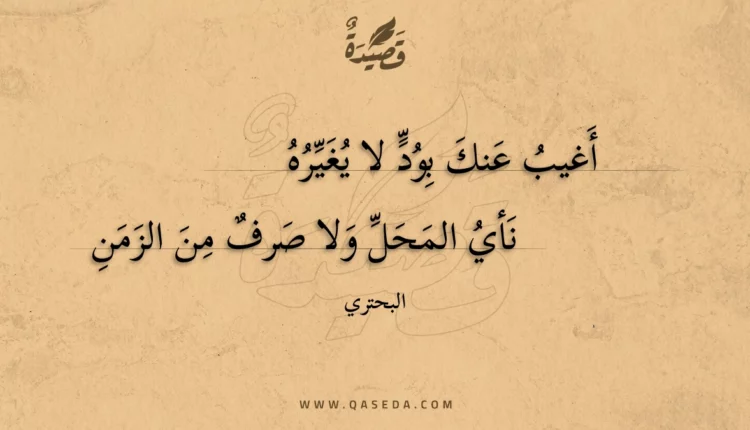 قَصِيْدَةٌ
أَغيبُ عَنكَ بِوُدٍّ لا يُغَيِّرُهُ
نَأيُ المَحَلِّ وَلا صَرفٌ مِنَ الزَمَنِ
البحتري
WWW.QASEDA.COM